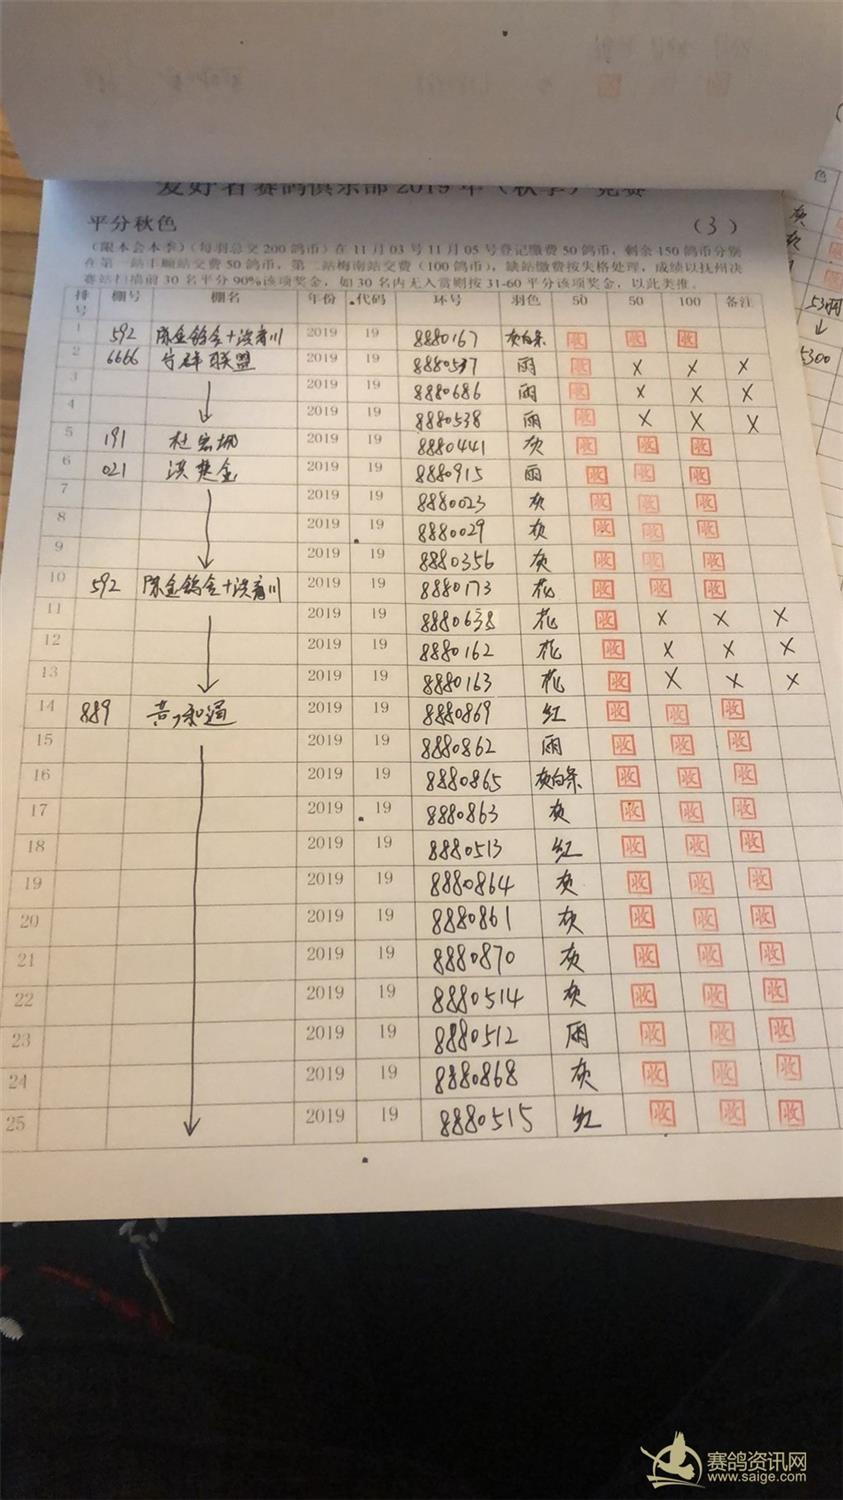 爱好者赛鸽俱乐部2019年（秋季）竞赛
平分秋色 （3）
（限本会本季）（每羽总交200鸽币）在11月03号11月05号登记缴费50鸽币，剩余150鸽币分别
在第一站丰顺站交费50鸽币，第二站梅南站交费（100鸽币），缺站缴费按失格处理，成绩以抚州决
赛站扫描前30名平分90%该项奖金，如30名内无入赏则按31-60平分该项奖金，以此类推。
排号 棚号 棚名 年份 代码 环号 羽色 50 50 100 备注
1 592 2019 19 8880167 灰白条 收 收 收
2 6666 联盟 2019 19 8880537 雨 收 X X X
3 2019 19 8880686 雨 收 X X X
4 2019 19 8880538 雨 收 X X X
5 191 2019 19 8880441 灰 收 收 收
6 021 2019 19 8880915 雨 收 收 收
7 2019 19 8880023 灰 收 收 收
8 2019 19 8880029 灰 收 收 收
9 2019 19 8880356 灰 收 收 收
10 592 2019 19 8880173 花 收 收 收
11 2019 19 花 收 X X X
12 2019 19 8880162 花 收 X X X
13 2019 19 8880163 花 收 X X X
14 889 2019 19 8880869 红 收 收 收
15 2019 19 8880862 雨 收 收 收
16 2019 19 8880865 灰白条 收 收 收
17 2019 19 8880863 灰 收 收 收
18 2019 19 8880513 红 收 收 收
19 2019 19 8880864 灰 收 收 收
20 2019 19 8880861 灰 收 收 收
21 2019 19 8880870 灰 收 收 收
22 2019 19 8880514 灰 收 收 收
23 2019 19 8880512 雨 收 收 收
24 2019 19 8880868 灰 收 收 收
25 2019 19 8880515 红 收 收 收
色
灰
5300
赛鸽资讯网
www.saige.com